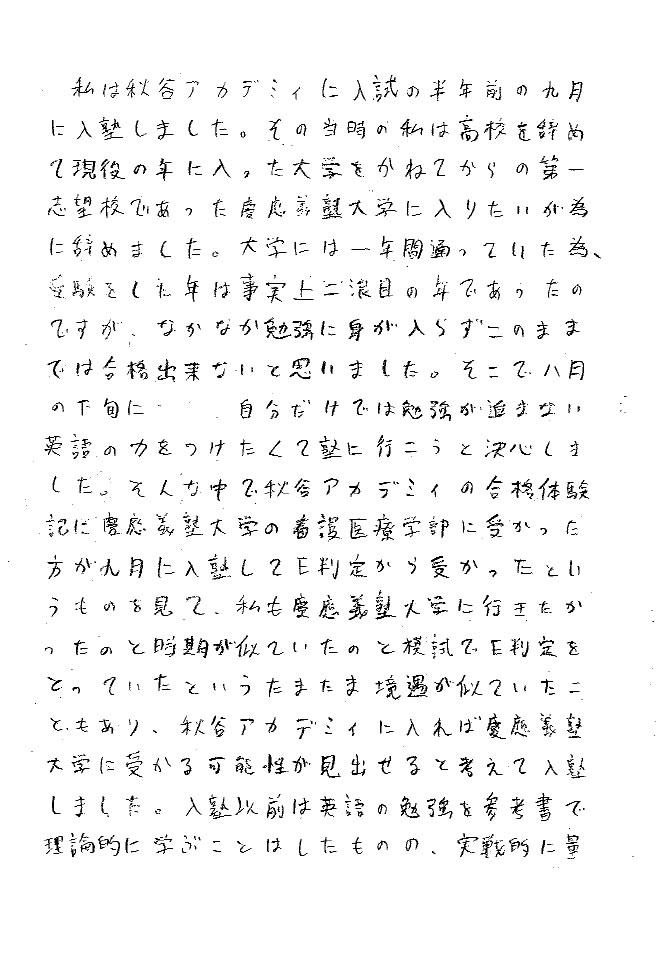 私は秋谷アカデミィに入試の半年前の九月
に入塾しました。その当時の私は高校を辞め
て現役の年に入った大学をかねてからの第一
志望校であった慶應義塾大学に入りたいが為
に辞めました。大学には一年間通っていた為、
受験をした年は事実上二浪目の年であったの
ですが、なかなか勉強に身が入らずこのまま
では合格出来ないと思いました。そこで八月
の下旬に 自分だけでは勉強が進まない
英語の力をつけたくて塾に行こうと決心しま
した。そんな中で秋谷アカデミィの合格体験
記に慶應義塾大学の看護医療学部に受かった
方が九月に入塾してE判定から受かったとい
うものを見て、私も慶應義塾大学に行きたか
ったのと時期が似ていたのと模試でE判定を
とっていたというたまたま境遇が似ていたこ
ともあり、秋谷アカデミィに入れば慶應義塾
大学に受かる可能性が見出せると考えて入塾
しました。入塾以前は英語の勉強を参考書で
理論的に学ぶことはしたものの、実戦的に量